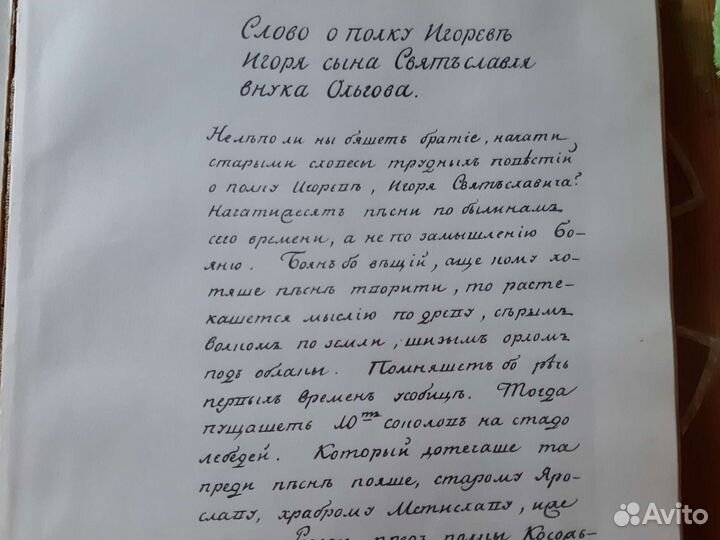 Слово о полку Игоревѣ
Игоря сына Святъславля
внука Ольгова.
Нелѣпо ли ны бяшетъ братіе, начати
старыми словесы трудныхъ повѣстій
о полку Игоревѣ, Игоря Святъславича?
Начатижесятъ пѣсни по былинамъ
сего времени, а не по замышленію Бо-
яню. Боянъ бо вѣщій, аще кому хо-
тяше пѣснь творити, то расте-
кашется мыслію по древу, сѣрымъ
волкомъ по земли, шизымъ орломъ
подъ облакы. Помняшетъ бо рѣчь
первыхъ временъ усобицѣ. Тогда
пущашеть 10ть соколовь на стадо
лебедей. Который дотечаше та
преди пѣснь пояше, старому Яро-
славу, храброму Мстиславу, иже
предъ полкы Касожь-
Avito